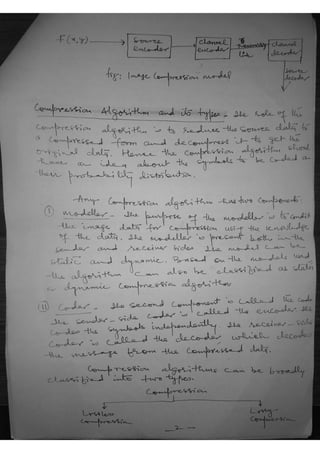 F(x,y) → Source encoder → Channel encoder → Channel decoder
source decoder
fig: Image Compression model
Compression Algorithm and its types - The role of the
compression algorithm is to reduce the source data to
a compressed form and decompress it to get the
original data. Hence the compression algorithm should
have an idea about the symbols to be coded &
their probability distribution.
Any Compression algorithm has two components.
(i) Modeller - The purpose of the modeller is to
the image data for compression using the knowledge
of the data. The modeller is present both in the
sender and receiver sides. The model can be
static and dynamic. Based on the models used
the algorithm can also be classified as static
a dynamic compression algorithm
(ii) Coder - The second component is called the code
The sender-side coder is called the encoder the
coder the symbols independently. The receiver-side
coder is called the decoder which decodes
the message from the compressed data.
Compression algorithms can be broadly
classified into two types.
Compression
Lossless Compression
Lossy Compression
- 2 -